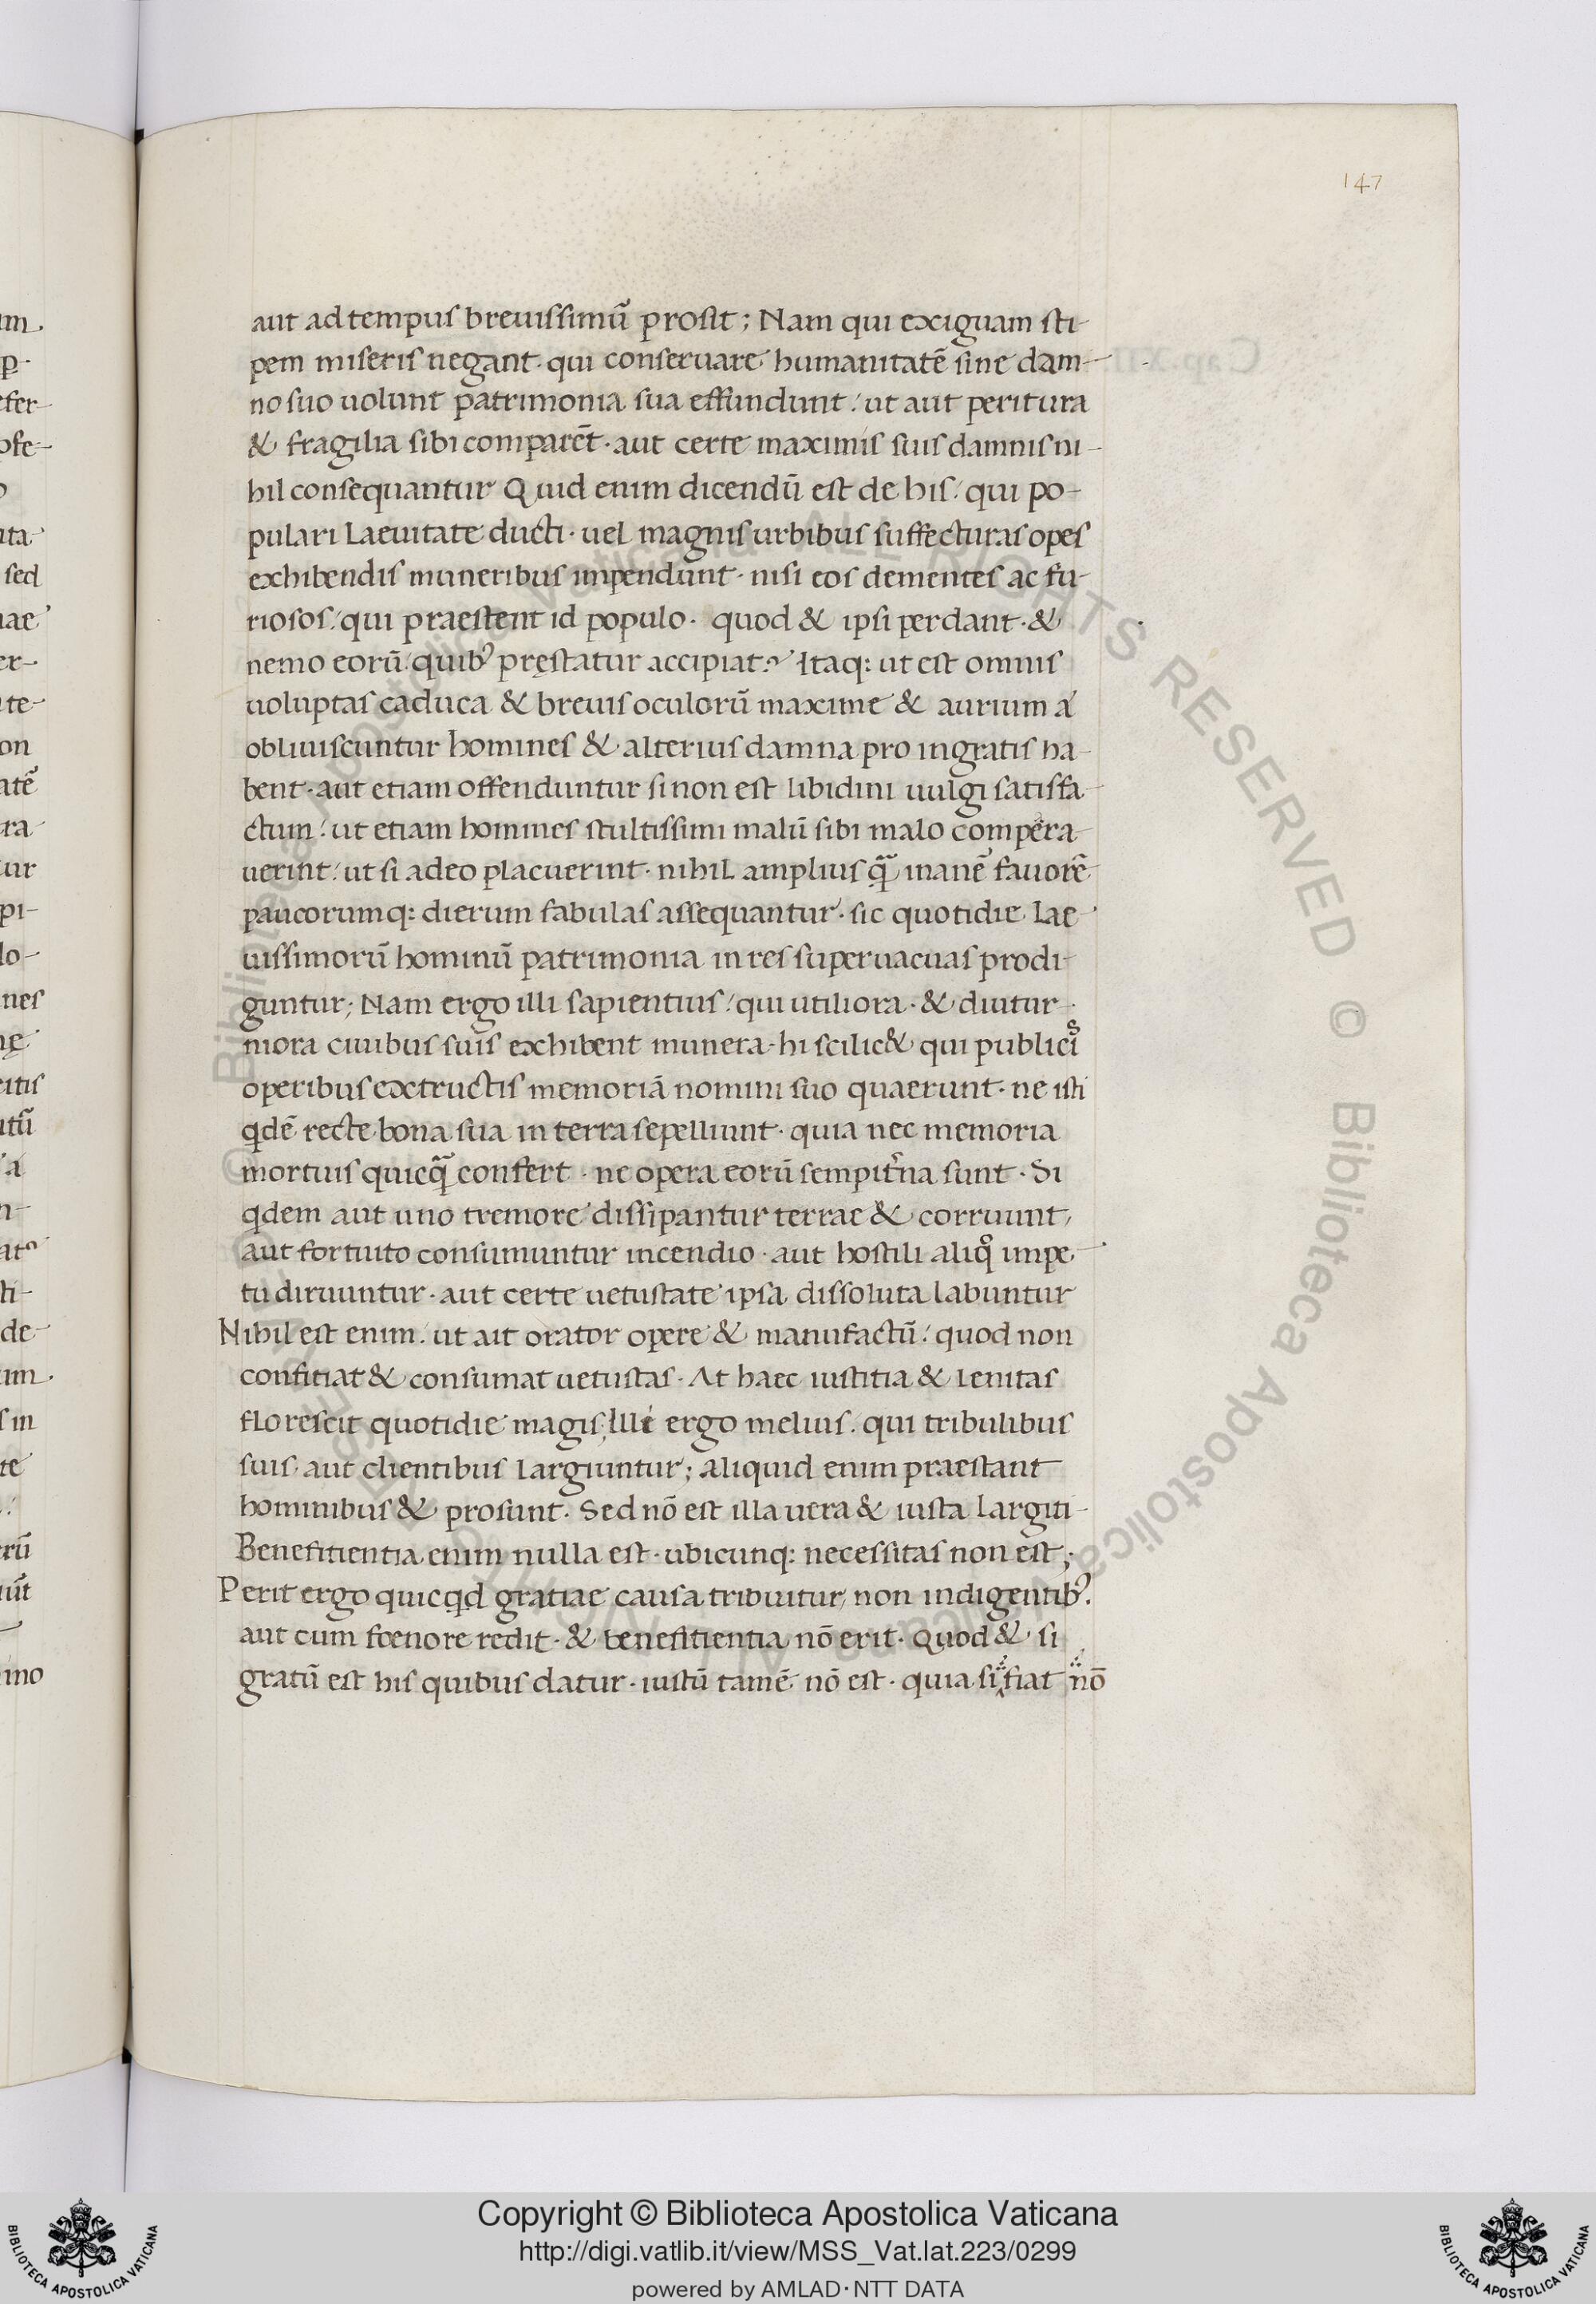 147
aut ad tempus breuissimũ prosit; Nam qui exiguam sti-
pem miseris negant· qui conseruare humanitatẽ sine dam-
no suo uolunt patrimonia sua effundunt: ut aut peritura
& fragilia sibi comparẽt· aut certe maximis suis damnis ni-
hil consequantur Quid enim dicendũ est de his: qui po-
pulari Laeuitate ducti· uel magnis urbibus suffecturas opes
exhibendis muneribus impendunt· nisi eos dementes ac fu-
riosos: qui praestent id populo· quod & ipsi perdant· &
nemo eorũ quib⁹ pręstatur accipiat? Itaq: ut est omnis
uoluptas caduca & breuis oculorũ maxime & aurium a
obliuiscuntur homines & alterius damna pro ingratis ha-
bent· aut etiam offenduntur si non est libidini uulgi satisfa-
ctum: ut etiam homines stultissimi malũ sibi malo compera
uerint: ut si adeo placuerint· nihil amplius q̃ inanẽ fauorẽ
paucorumq: dierum fabulas assequantur· sic quotidie Lae-
uissimorũ hominũ patrimonia in res superuacuas prodi-
guntur; Nam ergo illi sapientius: qui utiliora· & diutur-
niora ciuibus suis exhibent munera· hi scilic& qui publicis
operibus extructis memoriã nomini suo quaerunt· ne isti
qdẽ recte bona sua in terra sepelliunt· quia nec memoria
mortuis quicq̃ confert· ne opera eorũ sempit̃na sunt· Si
qdem aut uno tremore dissipantur terrae & corruunt,
aut fortuito consumuntur incendio· aut hostili aliqͦ impe-
tu diruuntur· aut certe uetustate ipsa dissoluta labuntur
Nihil est enim: ut ait orator opere & manufactũ: quod non
confitiat & consumat uetustas· At haec iustitia & Lenitas
florescit quotidie magis; Illi ergo melius· qui tribulibus
suis aut clientibus Largiuntur; aliquid enim praestant
hominibus & prosunt· Sed nõ est illa uera & iusta Largiti-
Benefitientia enim nulla est· ubicunq: necessitas non est;
Perit ergo quicqd gratiae causa tribuitur, non indigentib⁹·
aut cum foenore redit· & benefitientia nõ erit· Quod & si
gratũ est his quibus datur· iustũ tamẽ nõ est· quia si fiat nõ
Copyright © Biblioteca Apostolica Vaticana
http://digi.vatlib.it/view/MSS_Vat.lat.223/0299
powered by AMLAD·NTT DATA
BIBLIOTECA APOSTOLICA VATICANA
BIBLIOTECA APOSTOLICA VATICANA